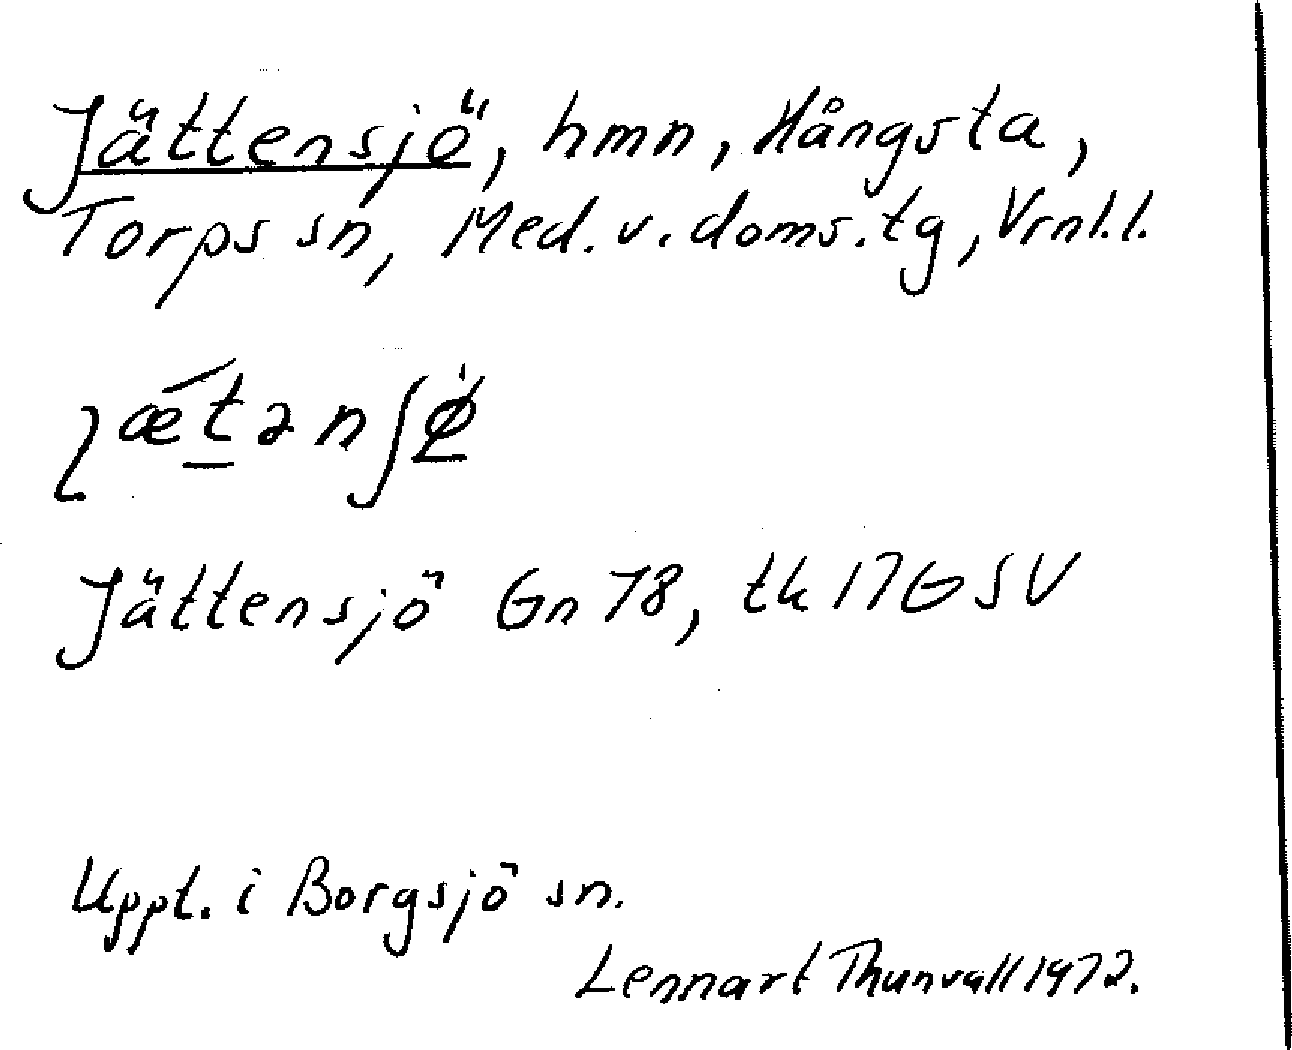 Jättensjö, hmn, Hångsta,
Torps sn, Med. v. doms. tg, Vrnl. l.
ʅǽt̲ənʃø̲̀
Jättensjö Gn 78, tk 17G SV
Uppt. i Borgsjö sn.
Lennart Thunvall 1972.